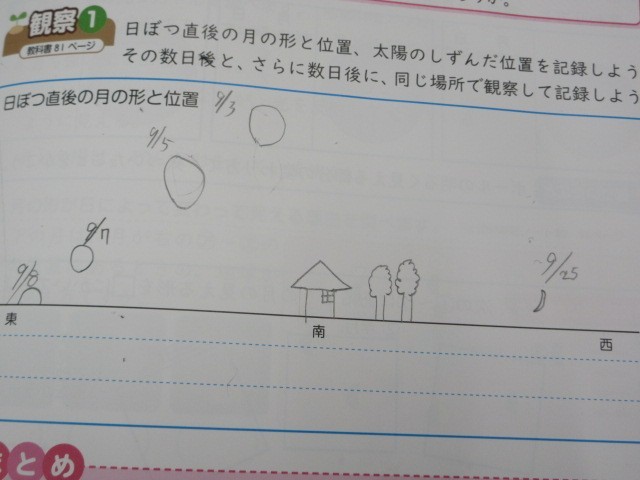 観察1
教科書81ページ
日ぼつ直後の月の形と位置、太陽のしずんだ位置を記録しよう
その数日後と、さらに数日後に、同じ場所で観察して記録しよう
日ぼつ直後の月の形と位置
9/3
9/5
9/7
9/8
9/25
東
南
西
とめ